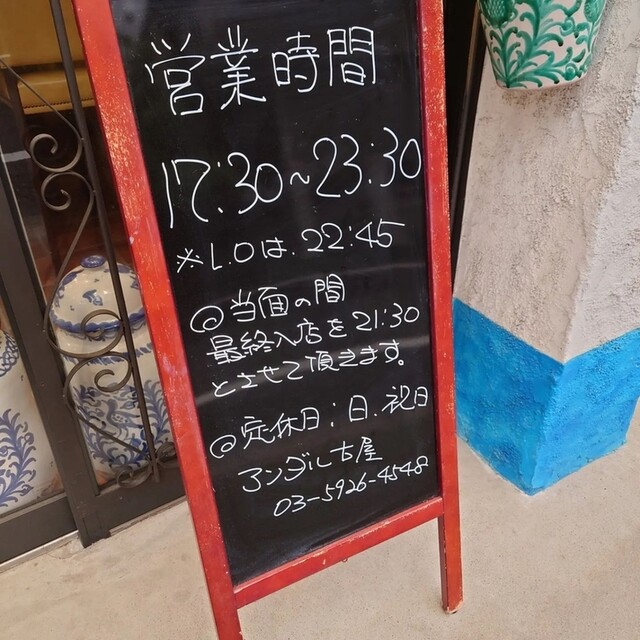 営業時間
17:30~23:30
※L.Oは.22:45
◎当面の間
最終入店を21:30
とさせて頂きます。
◎定休日:日.祝日
アンダルセ屋
03-5926-4548